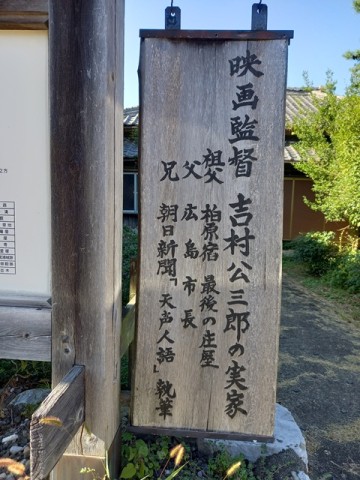 映画監督 吉村公三郎の実家
祖父 柏原宿 最後の庄屋
父 広島市長
兄 朝日新聞「天声人語」執筆